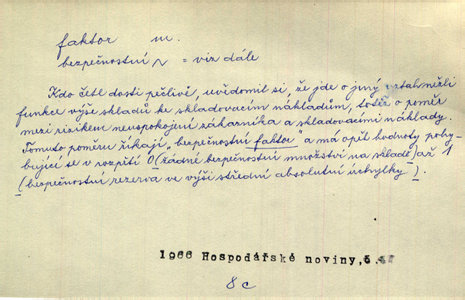 faktor m.
bezpečnostní ~ = viz dále
Kdo četl dosti pečlivě, uvědomil si, že jde o jiný vztah mezi
funkce výše skladů ke skladovacím nákladům, totéž o poměr
mezi rizikem neuspokojení zákazníka a skladovacími náklady.
Tomuto poměru říkají „bezpečnostní faktor" a má opět hodnoty pohy-
bující se v rozpětí 0 (žádné bezpečnostní množství na skladě) až 1
(bezpečnostní rezerva ve výši střední absolutní úchylky).
1966 Hospodářské noviny, 5.
8c